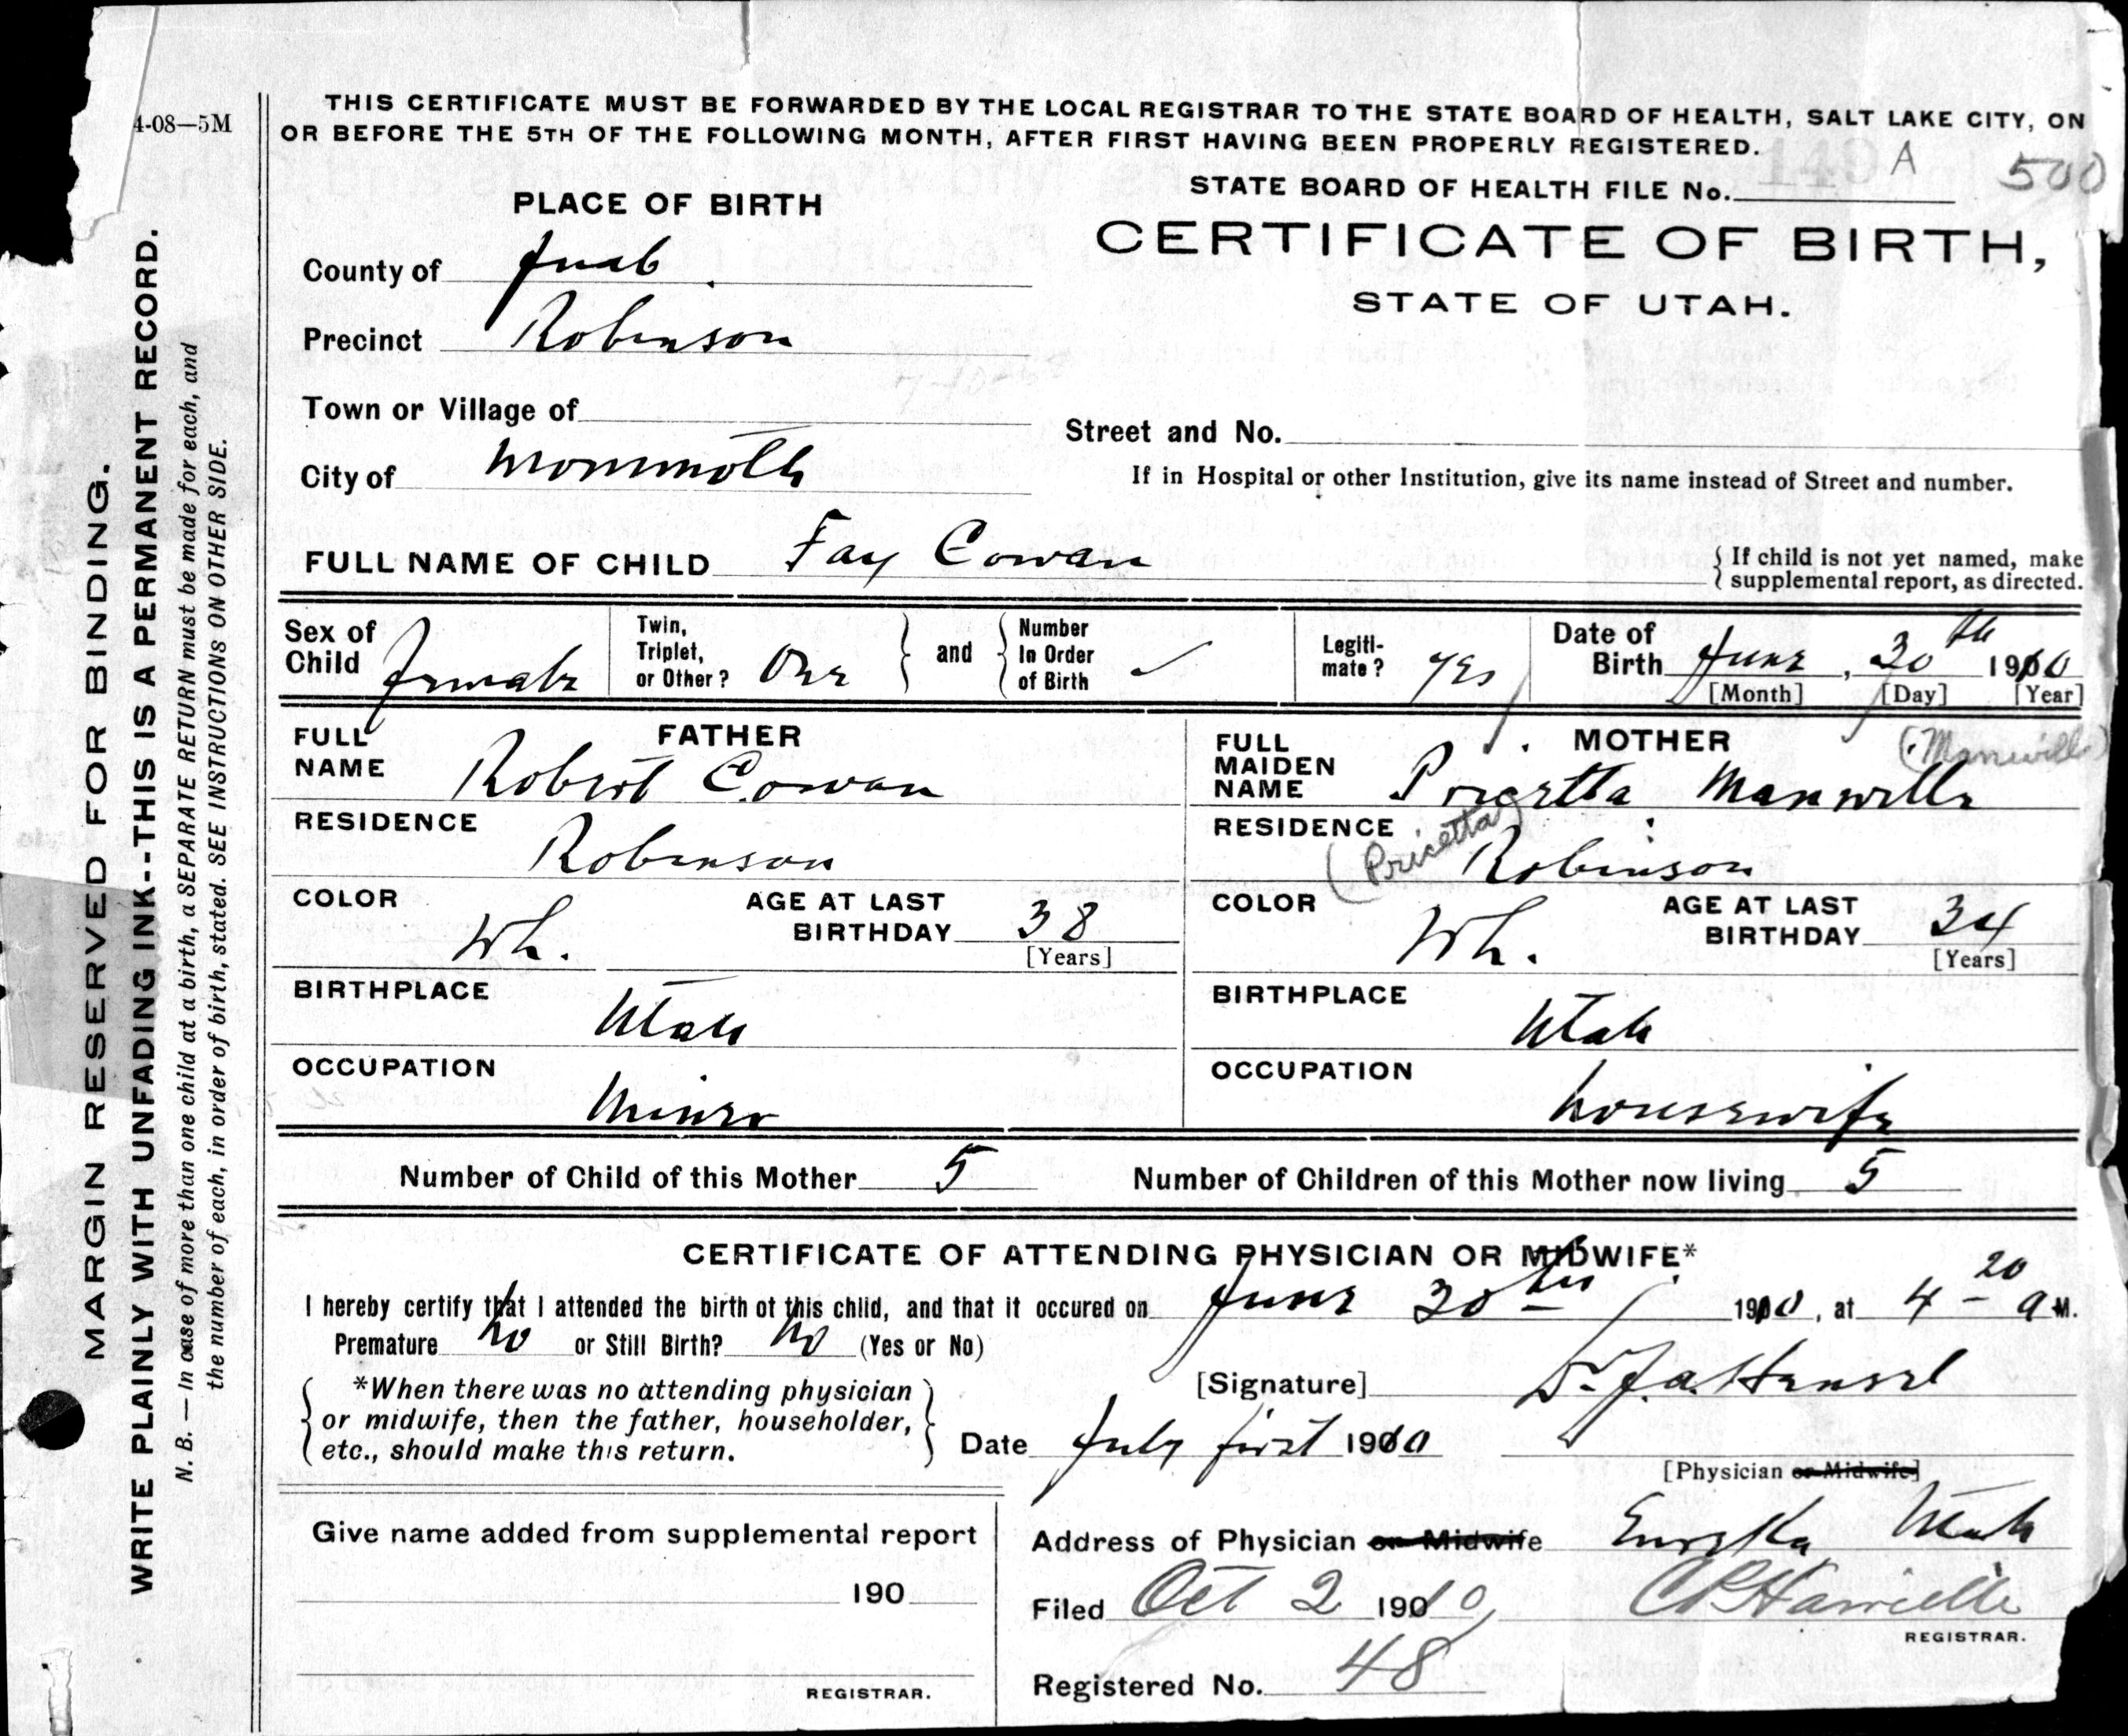 4-08—5M
THIS CERTIFICATE MUST BE FORWARDED BY THE LOCAL REGISTRAR TO THE STATE BOARD OF HEALTH, SALT LAKE CITY, ON
OR BEFORE THE 5TH OF THE FOLLOWING MONTH, AFTER FIRST HAVING BEEN PROPERLY REGISTERED.
STATE BOARD OF HEALTH FILE No. 149 A 500
CERTIFICATE OF BIRTH,
STATE OF UTAH.
PLACE OF BIRTH
County of Juab
Precinct Robinson
Town or Village of
City of Mommoth
Street and No.
If in Hospital or other Institution, give its name instead of Street and number.
FULL NAME OF CHILD Fay Cowan
If child is not yet named, make
supplemental report, as directed.
Sex of Child Female
Twin, Triplet, or Other? One and Number In Order of Birth ✓
Legiti-mate? yes
Date of Birth June, 30th 1910
[Month] [Day] [Year]
FATHER
FULL NAME Robert Cowan
RESIDENCE Robinson
COLOR Wh. AGE AT LAST BIRTHDAY 38
[Years]
BIRTHPLACE Utah
OCCUPATION Miner
MOTHER (Manwill)
FULL MAIDEN NAME Pricetta Manwille
(Pricetta)
RESIDENCE Robinson
COLOR Wh. AGE AT LAST BIRTHDAY 34
[Years]
BIRTHPLACE Utah
OCCUPATION housewife
Number of Child of this Mother 5 Number of Children of this Mother now living 5
CERTIFICATE OF ATTENDING PHYSICIAN OR MIDWIFE*
I hereby certify that I attended the birth of this child, and that it occured on June 30th 1910, at 4-20 a M.
Premature no or Still Birth? no (Yes or No)
*When there was no attending physician
or midwife, then the father, householder,
etc., should make this return.
[Signature] Dr J. A. Hensel
Date July first 1910
[Physician or Midwife]
Address of Physician or Midwife Eureka Utah
Filed Oct 2 1910
REGISTRAR.
Registered No. 48
Give name added from supplemental report
190
REGISTRAR.
MARGIN RESERVED FOR BINDING.
WRITE PLAINLY WITH UNFADING INK--THIS IS A PERMANENT RECORD.
N. B. — In case of more than one child at a birth, a SEPARATE RETURN must be made for each, and
the number of each, in order of birth, stated. SEE INSTRUCTIONS ON OTHER SIDE.